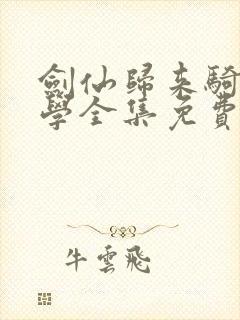 劍仙歸來騎
學全集免費
牛雲飛